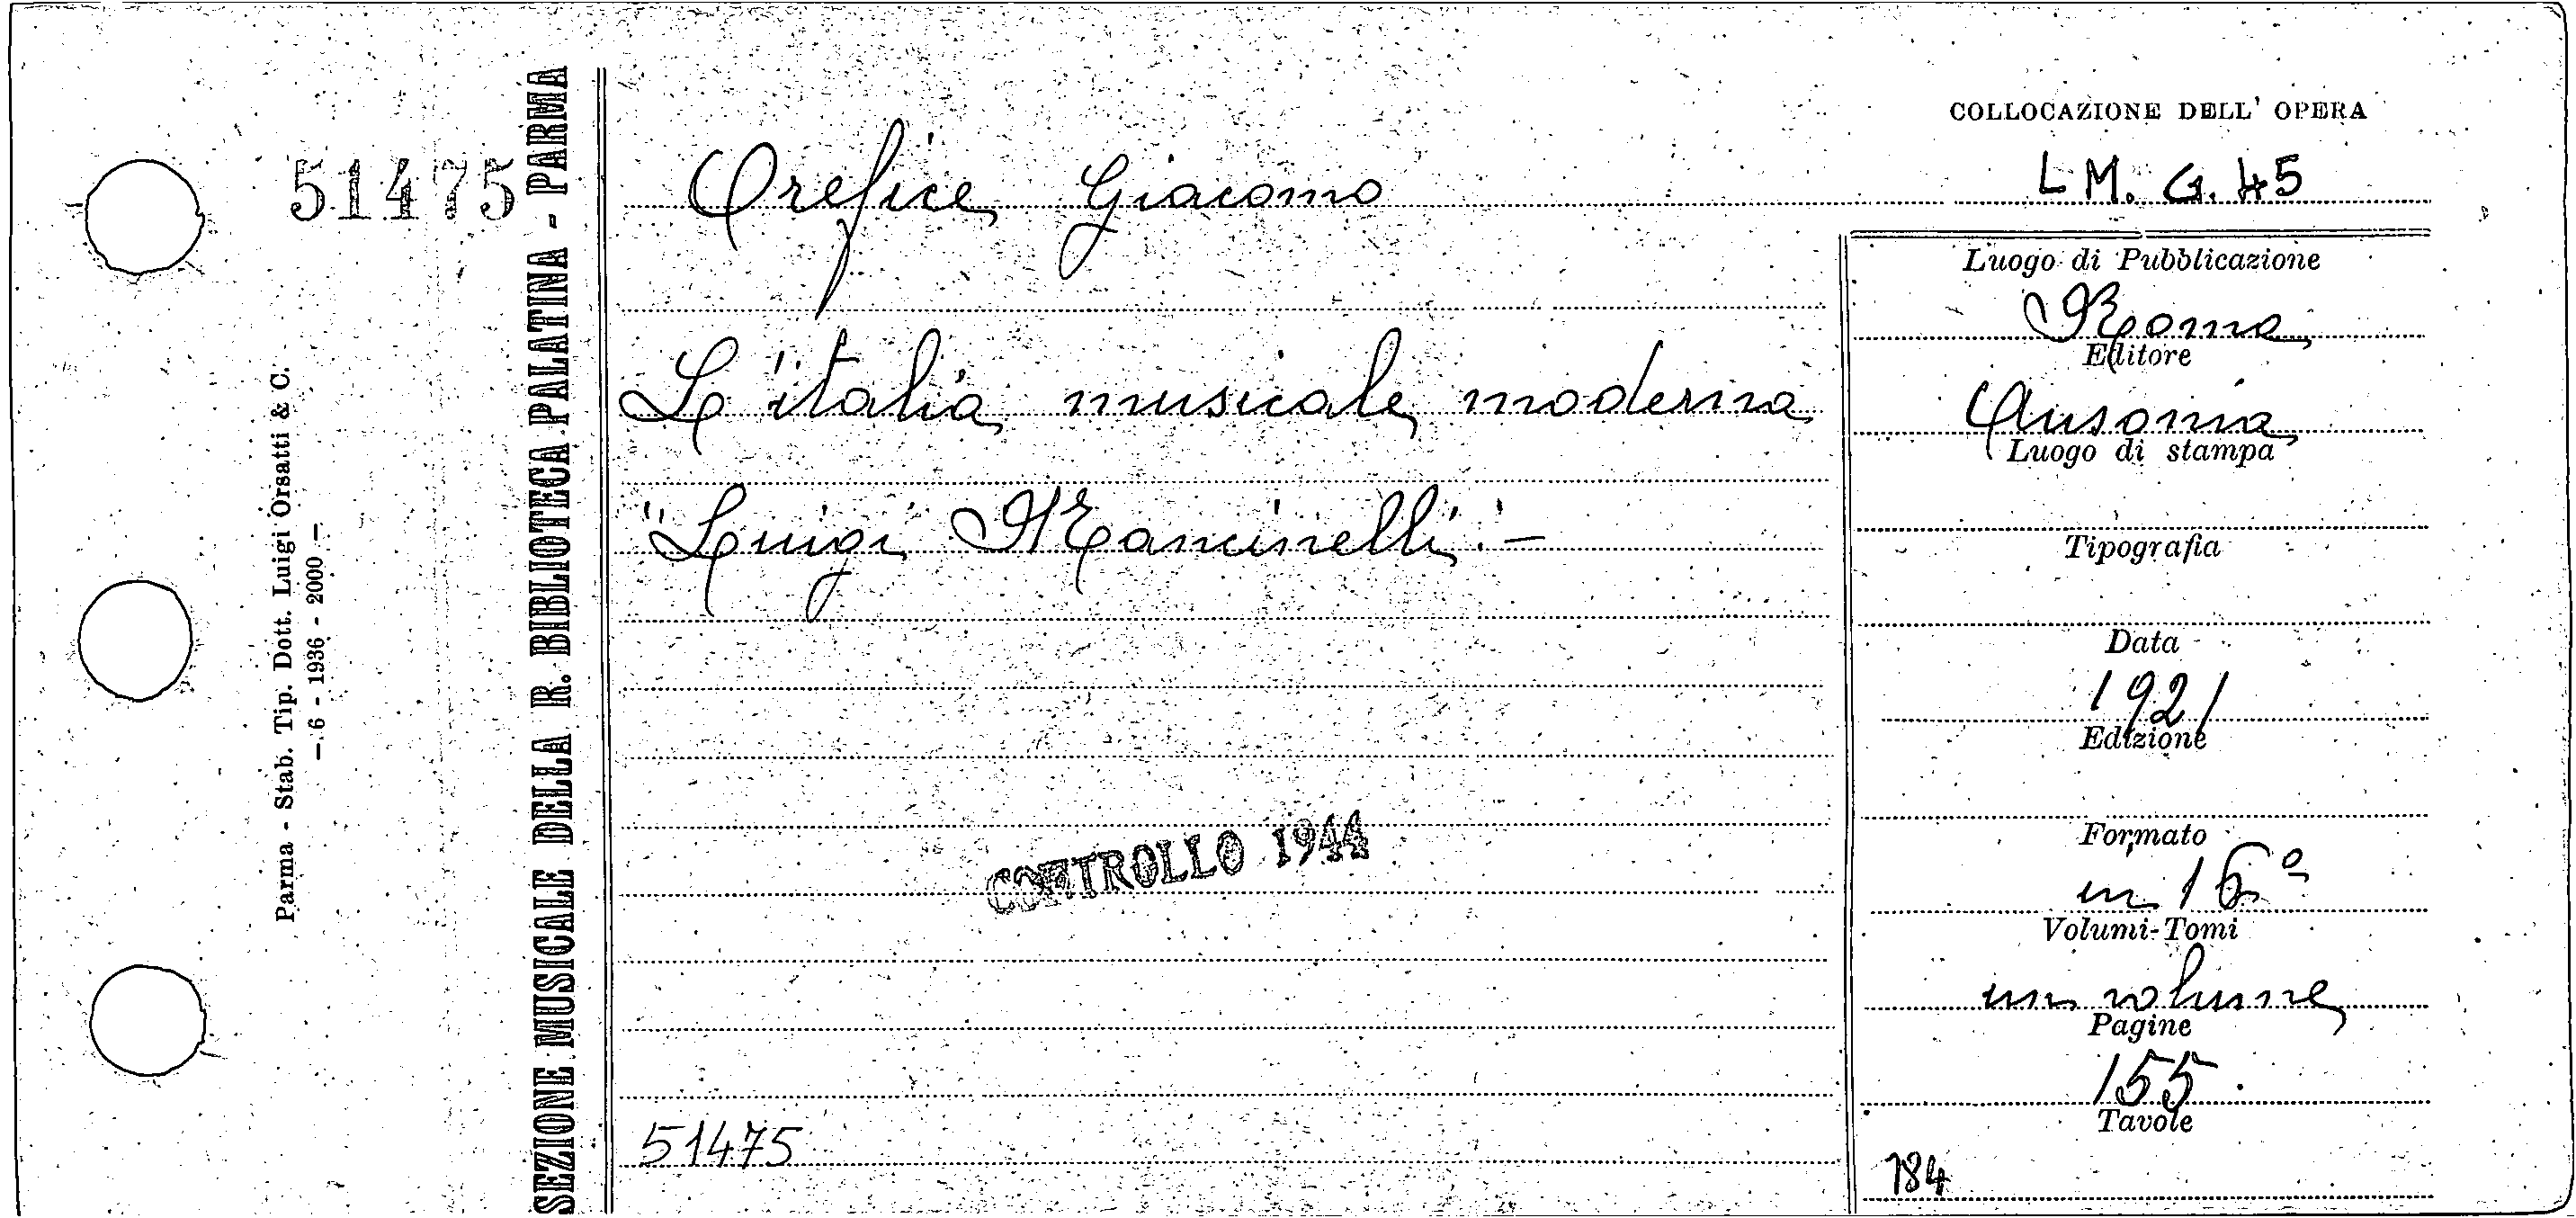 51475
Parma - Stab. Tip. Dott. Luigi Orsatti & C.
— 6 - 1936 - 2000 —
SEZIONE MUSICALE DELLA R. BIBLIOTECA PALATINA - PARMA
Orefice Giacomo
L'italia musicale moderna
"Luigi Mancinelli" -
CONTROLLO 1944
51475
COLLOCAZIONE DELL' OPERA
L M. G. 45
Luogo di Pubblicazione
Roma
Editore
Ausonia
Luogo di stampa
Tipografia
Data
1921
Edizione
Formato
in 16º
Volumi-Tomi
un volume
Pagine
155
Tavole
184